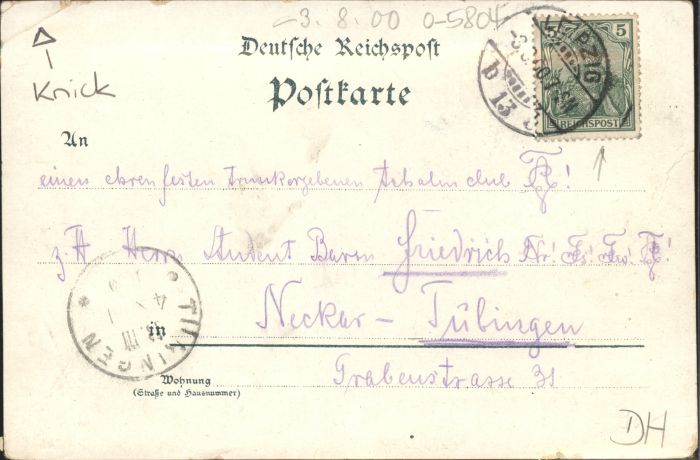 -3.8.00 0-5804
Knick
Deutsche Reichspost
Postkarte
5
REICHSPOST
LEIPZIG
13
An
einen ehrenfesten trunkergebenen
z. H. Herrn Student Baron Friedrich
Neckar - Tübingen
in
TÜBINGEN
Wohnung
(Straße und Hausnummer)
Grabenstrasse 31
DH